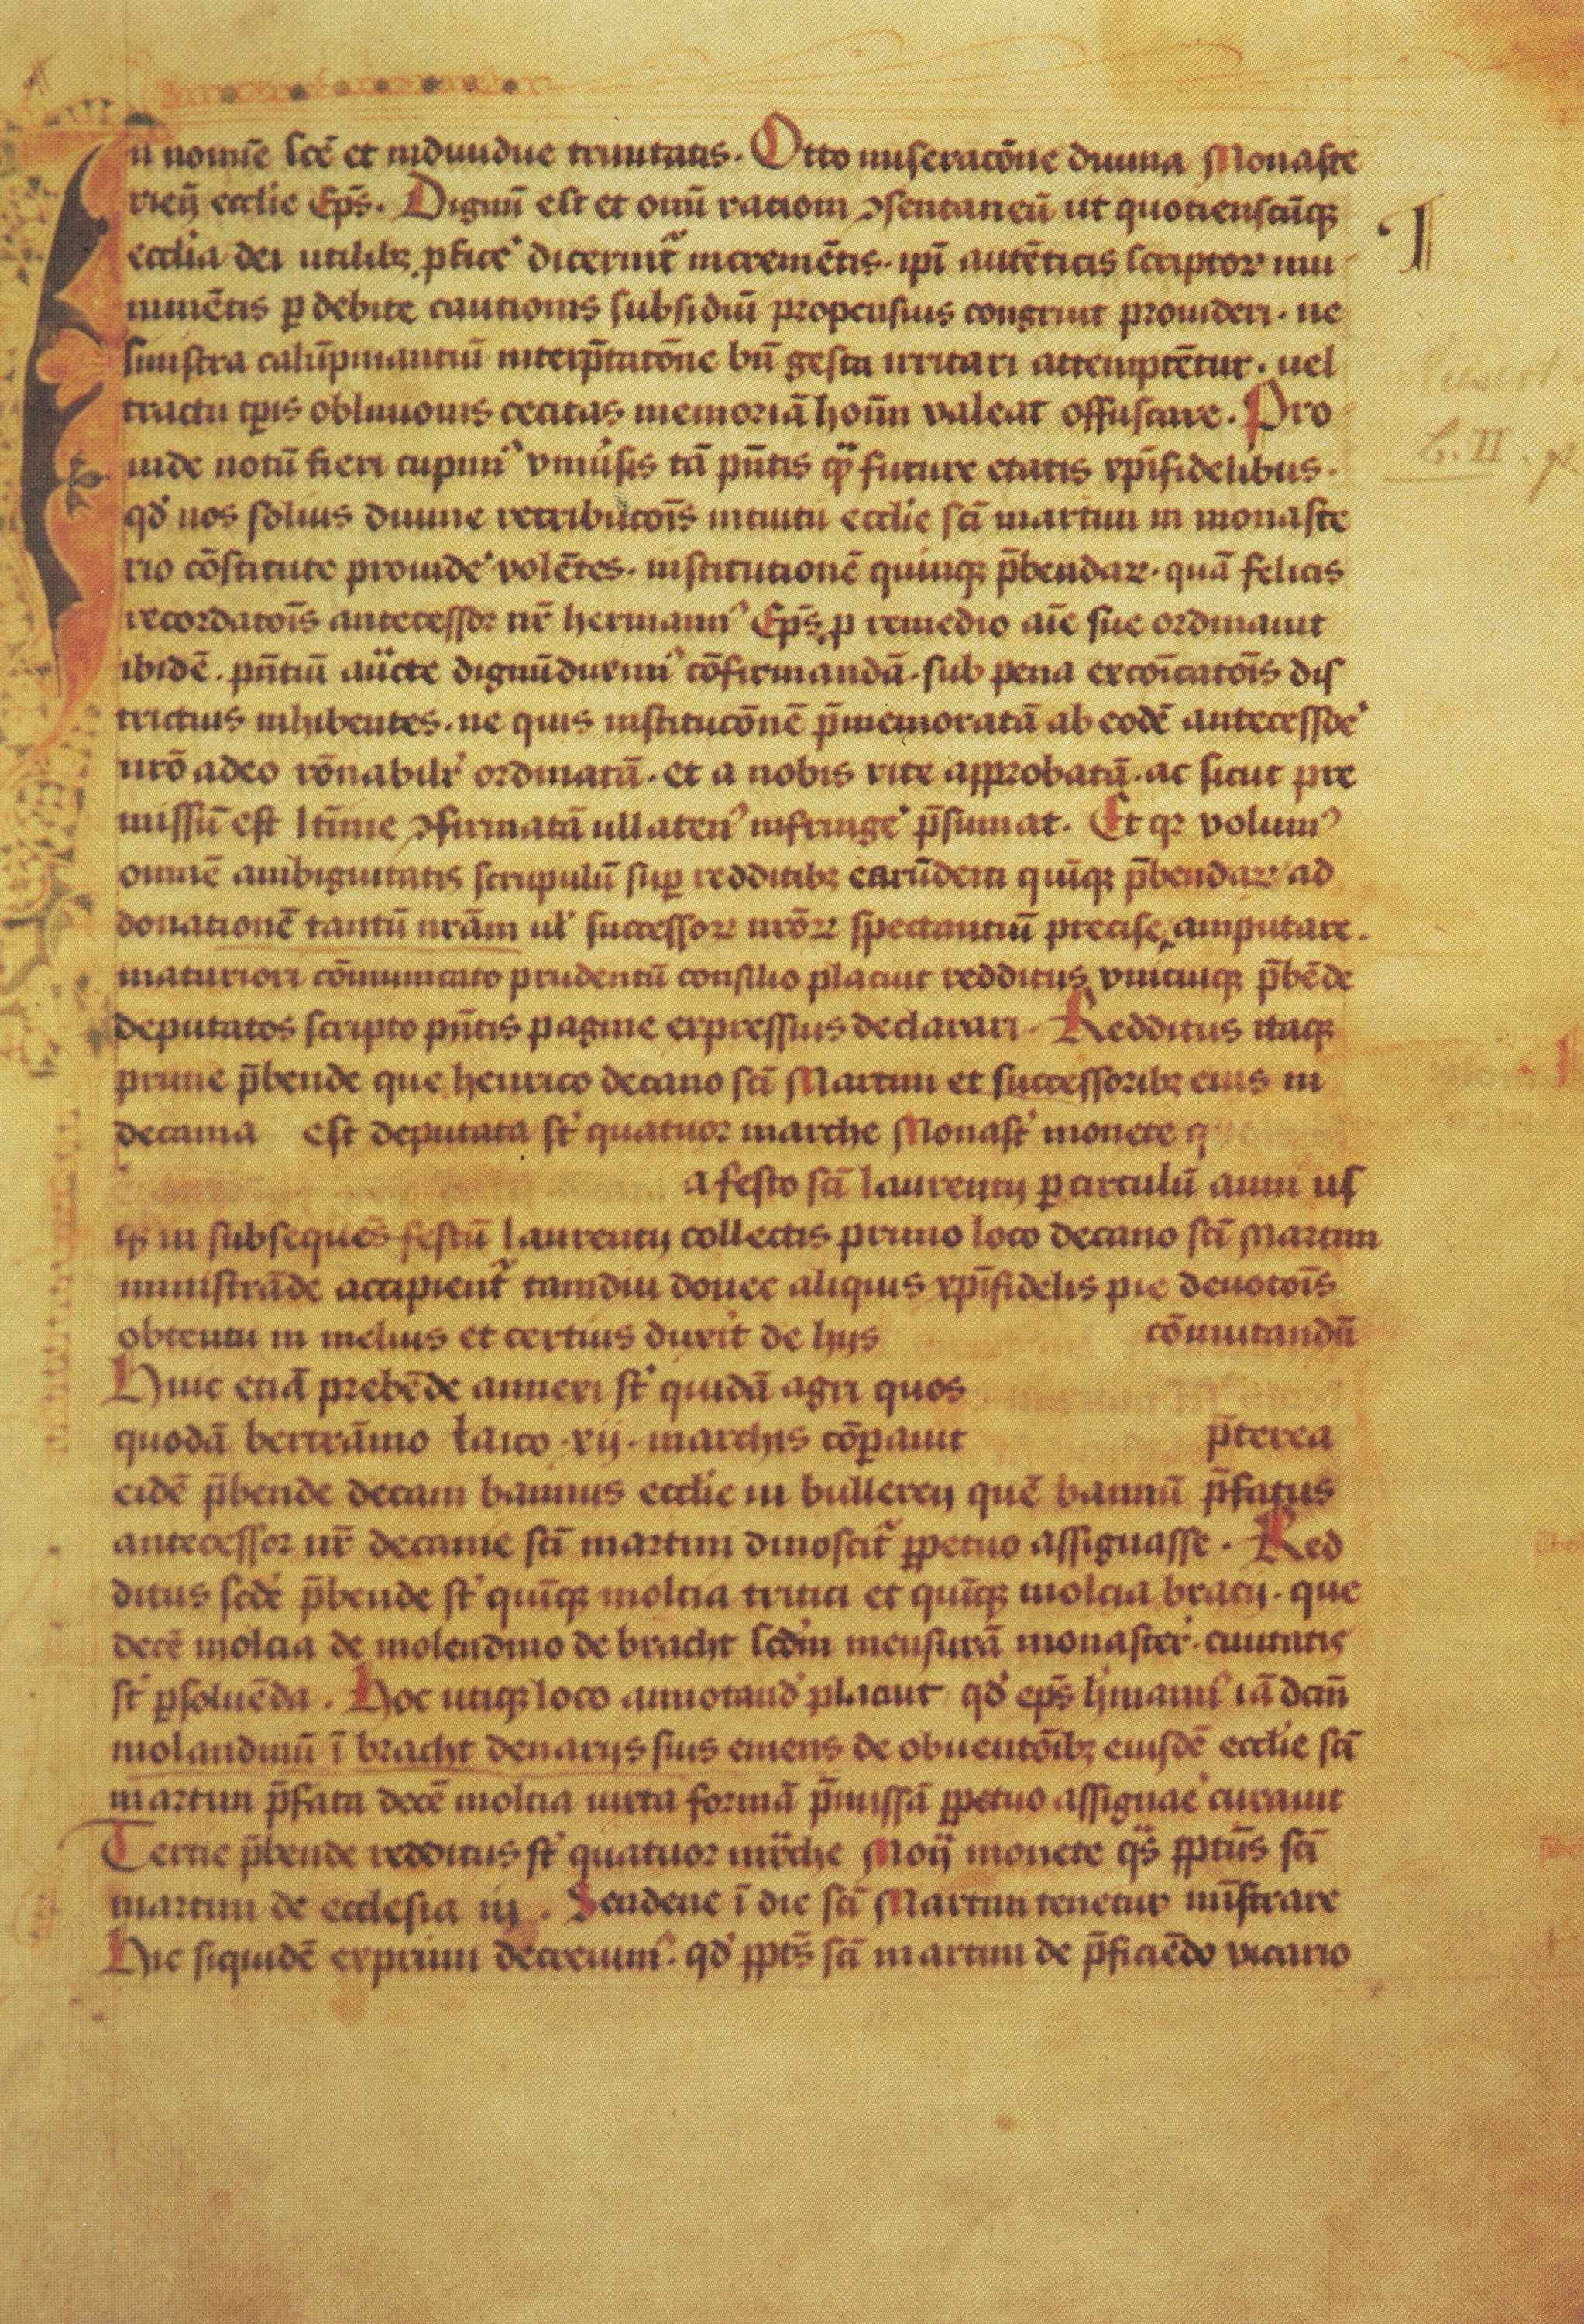 In nomīe scē et indiuidue trinitatis. Otto miseracōne diuina Monaste
rieñ ecclie Ep̄s. Dignū est et om̄i rationi ꝯsentaneū ut quotienscūqꝫ
ecclia dei utilibꝫ ꝓficeˀ dicernit᷑ incremētis. ip̄i autēticis scriptoꝝ mu
nimētis ꝑ debite cautionis subsidiū propensius congruit prouideri. ne
sinistra calūpniantiū interp̄tatōne bn̄ gesta irritari attemptētur. uel
tractu tp̄is obliuionis cecitas memoriā hoīm valeat offuscare. Pro
inde notū fieri cupimꝰ vniūsis tā pn̄tis qͣ̄ future etatis xp̄ifidelibus.
qd̓ nos solius diuine retributōīs intuitu ecclie scī martini in monaste
rio cōstitute prouideˀ volētes. institutionē quinqꝫ p̄bendaꝝ. quā felicis
recordatōīs antecessor nr̄ hermannꝰ Ep̄s ꝓ remedio aīe sue ordinauit
ibidē. pn̄tiū auc̈te dignū durimꝰ cōfirmandā. sub pena excōīcatōīs dis
trictius inhibentes. ne quis institucōnē p̄memoratā ab eodē antecessoeˀ
nrō adeo rōnabilr̓ ordinatā. et a nobis rite approbatā. ac sicut pre
missū est ltīme ꝯfirmatā ullatenꝰ infringeˀ p̄sumat. Et qꝛ volumꝰ
omnē ambiguitatis scrupulū suꝑ redditibꝫ earūdem quīqꝫ p̄bendaꝝ ad
donationē tantū nrām ul̓ successoꝝ nrōꝝ spectantiū precise amputare.
maturiori cōmunicato prudentū consilio placuit redditus vnicuiqꝫ p̄bēde
deputatos scripto pn̄tis pagine expressius declarari. Redditus itaqꝫ
prime p̄bende que henrico decano scī Martini et successoribꝫ eius in
decania est deputata st̓ quatuor marche Monast̓ monete q
a festo scī laurentij ꝑ circulū anni us
qꝫ in subsequēs festū laurentij collectis primo loco decano scī Martini
ministrāde accipient᷑ tamdiu donec aliquis xp̄ifidelis pie deuotōīs
obtentu in melius et certius duxit de hijs cōmutandū
Huic etiā prebēde annexi st̓ quidā agri quos
quodā bertrāmo laico .xij. marchis cōꝑauit p̄terea
eidē p̄bende decani bannus ecclie in bullereñ quē bannū p̄fatus
antecessor nr̄ decanie scī martini dinoscit᷑ ꝑpetuo assignasse. Red
ditus scd̓e p̄bende st̓ quīqꝫ moltia tritici et quīqꝫ moltia bracij. que
decē moltia de molendino de bracht scd̓m mensurā monaster̓. ciuitatis
st̓ ꝑsoluēda. Hoc utiqꝫ loco annotand̓ placuit qd̓ ep̄s h̓mannꝰ iā dc̄m̄
molandinū ī bracht denarijs suis emens de obuentōībꝫ eiusdē ecclie scī
martini p̄fata decē moltia iuxta formā p̄missā ꝑpetuo assignaeˀ curauit
Tertie p̄bende redditus st̓ quatuor mr̈che Moñ monete qͣs ꝓpt̄us scī
martini de ecclesia in Sendene ī die scī Martini tenetur mīstrare
Hic siquidē exprimi decreuimꝰ. qd̓ ꝓpt̄s scī martini de p̄ficiēdo vicario